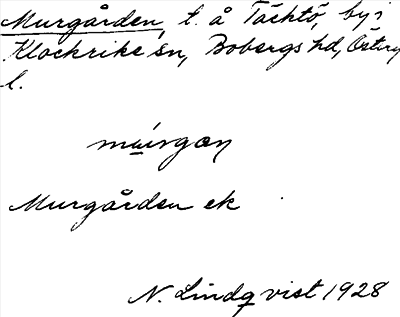 Murgården, t. å Täcktö, by i
Klockrike sn, Bobergs hd, Österg
l.
murgan
Murgården ek
N. Lindqvist 1928